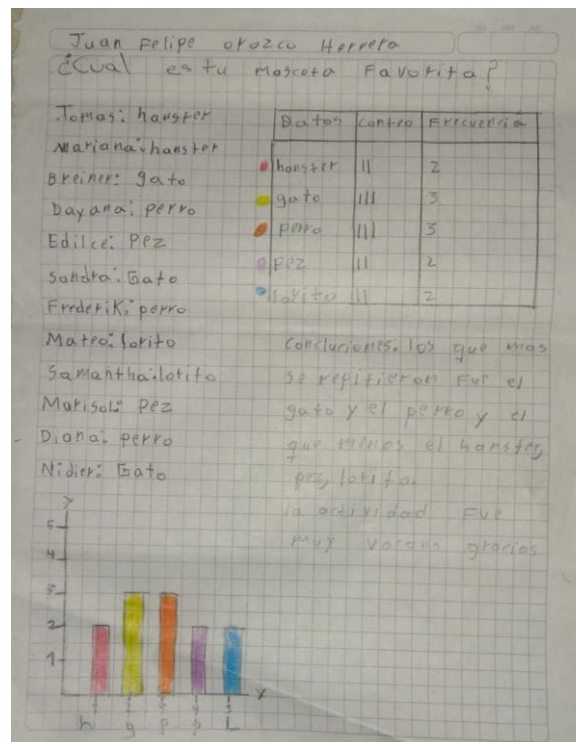 Juan Felipe orozco Herrera
¿Cual es tu Mascota Favorita?
Tomas: hanster
Mariana: hanster
Breiner: gato
Dayana: perro
Edilce: Pez
Sandra: Gato
Frederik: perro
Mateo: lorito
Samantha: lorito
Marisol: Pez
Diana: perro
Nidier: Gato
Datos Conteo Frecuencia
hanster II 2
gato III 3
perro III 3
pez II 2
lorito II 2
Concluciones. los que mas
se repitieron Fue el
gato y el perro y el
que menos el hanster,
pez, lorito.
la actividad Fue
muy vacana gracias
y
5
4
3
2
1
x
1 2 3 4 5
h g p p L